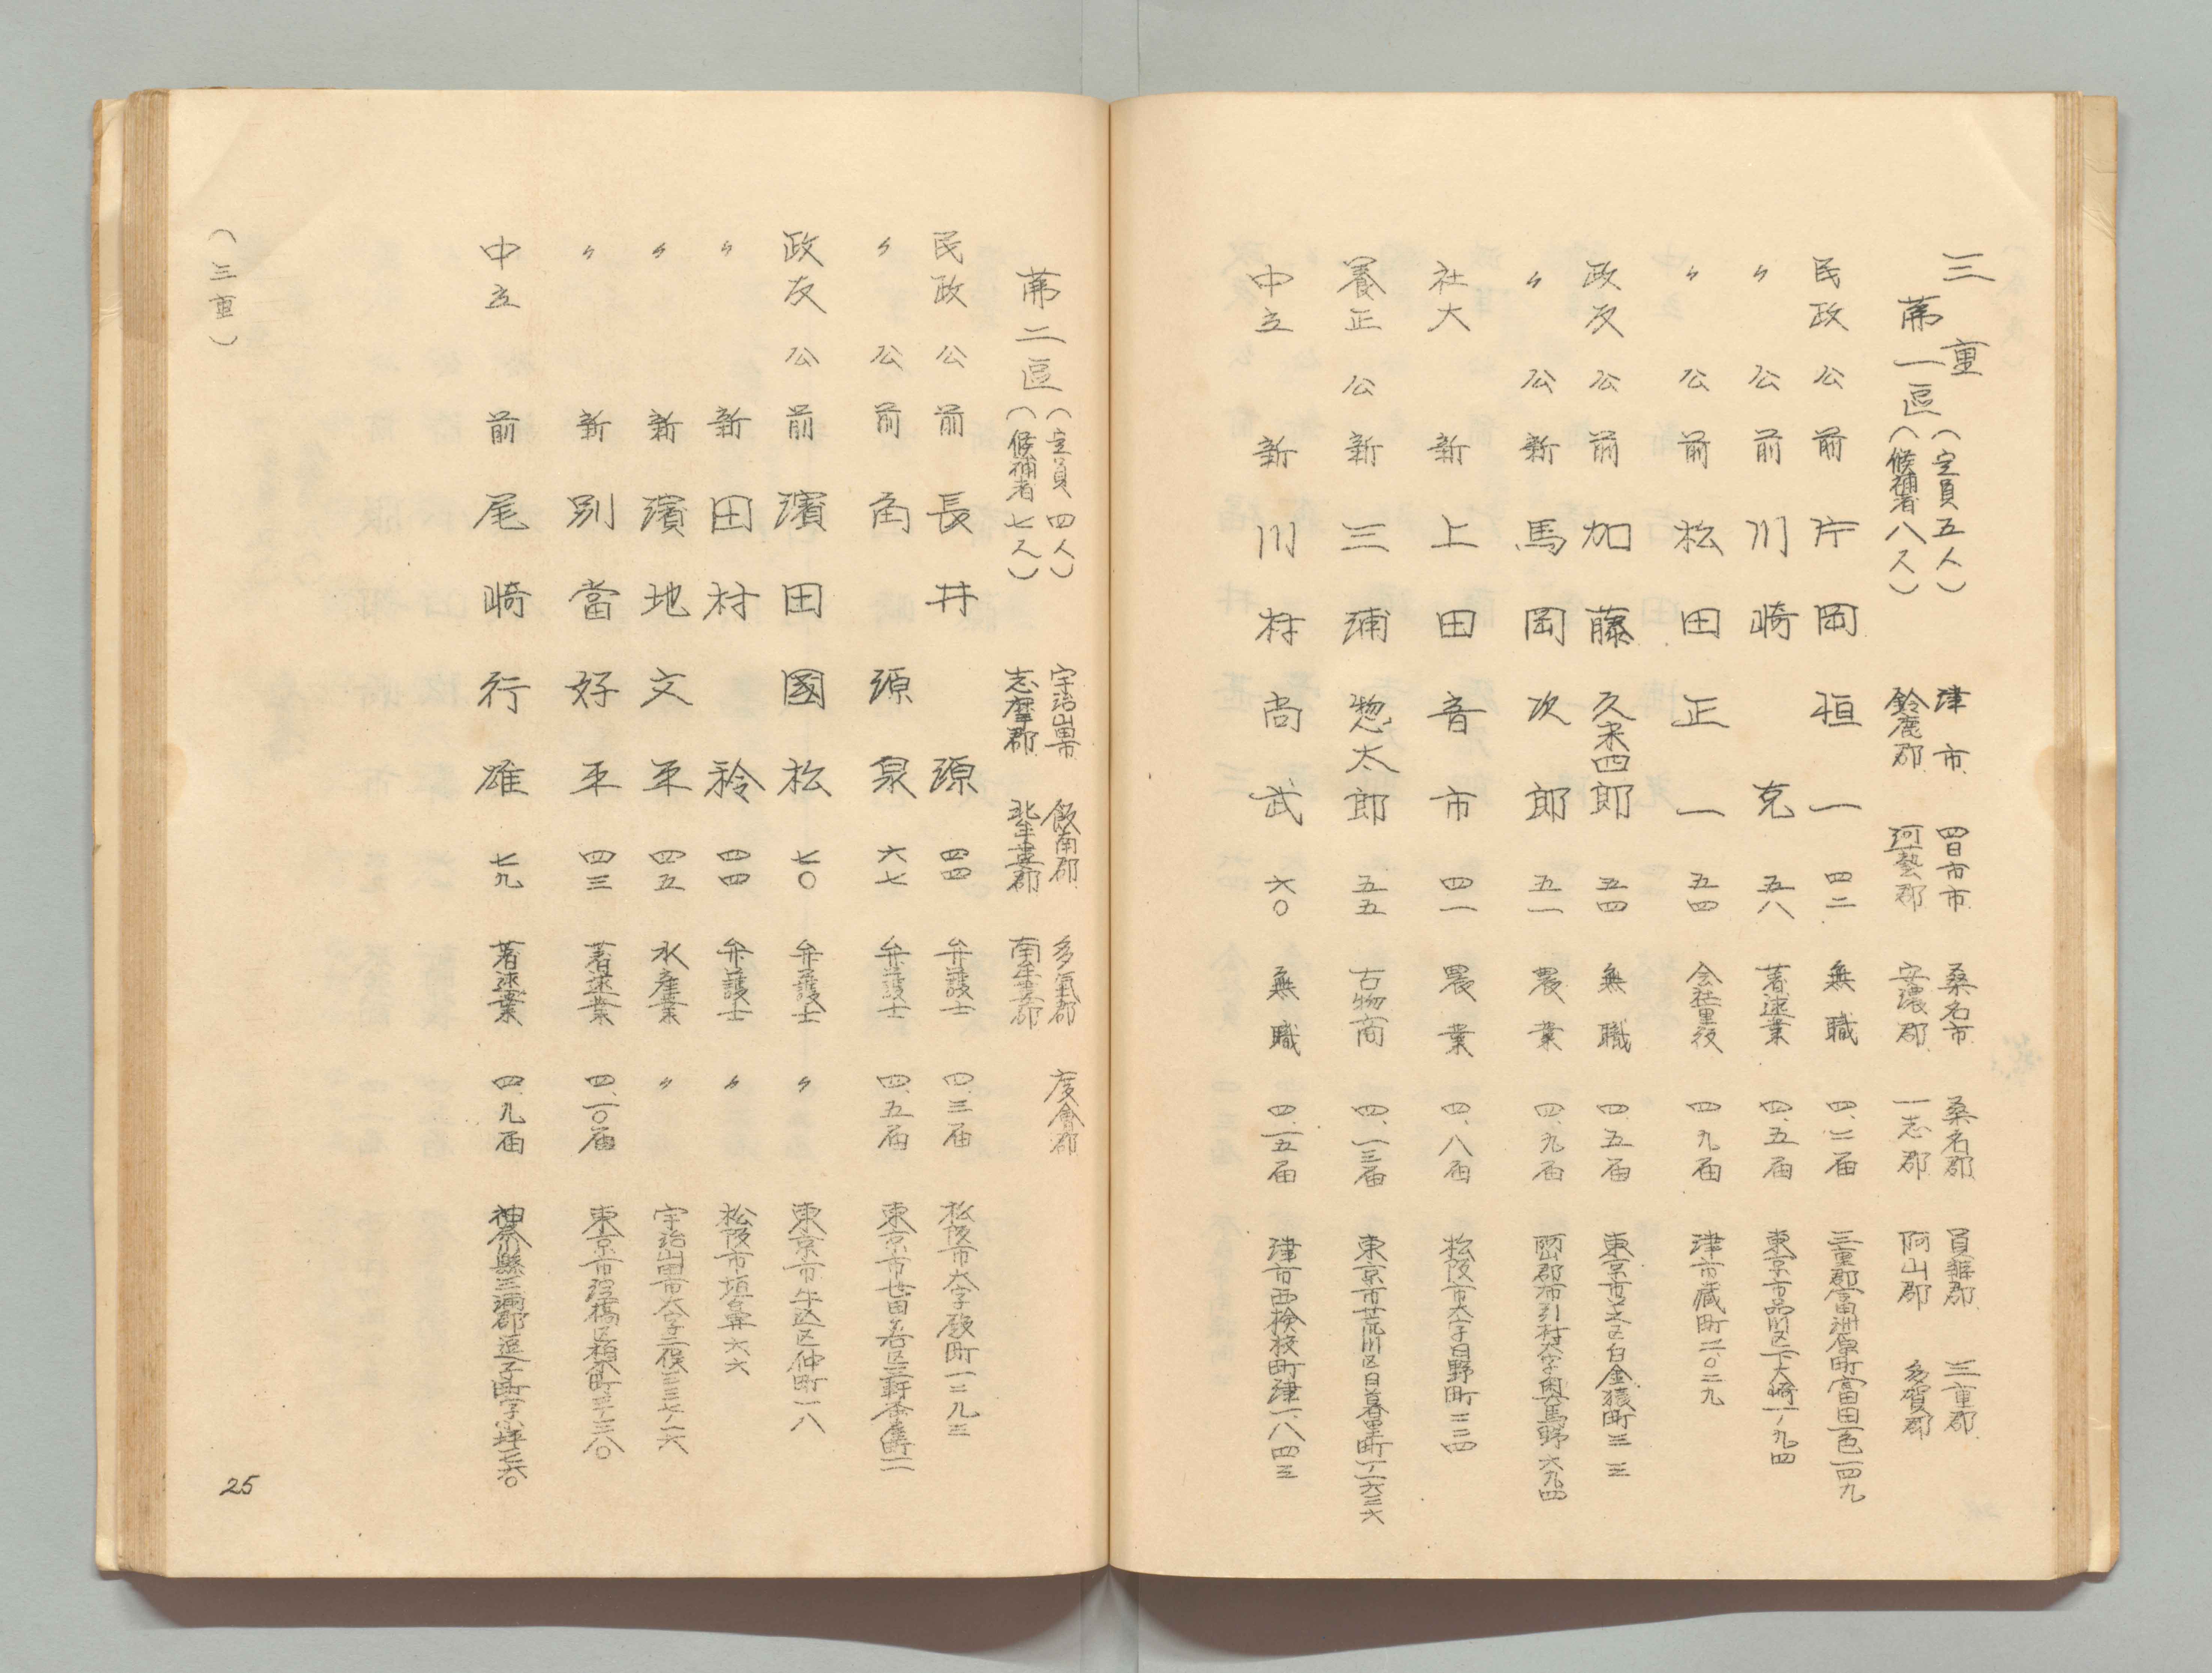 三重
第一區（定員五人）（候補者八人）
津市 四日市市 桑名市 桑名郡 員辨郡 三重郡
鈴鹿郡 河藝郡 安濃郡 一志郡 阿山郡 多賀郡
民政 公 前 片岡恒一 四二 無職 四、二届 三重郡富洲原町富田一色一四九
〃 公 前 川崎克 五八 著述業 四、五届 東京市品川区下大崎一ノ九四
〃 公 前 松田正一 五四 会社重役 四、九届 津市蔵町二、〇二九
政友 公 前 加藤久米四郎 五四 無職 四、五届 東京市芝区白金猿町三三
〃 公 新 馬岡次郎 五一 農業 四、九届 阿山郡布引村大字奥馬野六九四
社大 新 上田音市 四一 農業 四、八届 松阪市大字日野町三三四
養正 公 新 三浦惣太郎 五五 古物商 四、一三届 東京市荒川区日暮里町一ノ二六三六
中立 新 川村尚武 六〇 無職 四、一五届 津市西検校町津一、八四三
第二區（定員四人）（候補者七人）
宇治山田市 飯南郡 多氣郡 度會郡
志摩郡 北牟婁郡 南牟婁郡
民政 公 前 長井源 四四 弁護士 四、三届 松阪市大字殿町一二九三
〃 公 前 角源泉 六七 弁護士 四、五届 東京市世田谷区三軒茶屋町一一
政友 公 前 濱田國松 七〇 弁護士 〃 東京市牛込区仲町一八
〃 新 田村稔 四四 弁護士 〃 松阪市垣鼻六六
〃 新 濱地文平 四五 水産業 〃 宇治山田市大字二俣三三七ノ一六
〃 新 別當好平 四三 著述業 四、一〇届 東京市淀橋区柏木町三ノ三八〇
中立 前 尾崎行雄 七九 著述業 四、九届 神奈川縣三浦郡逗子町字小坪一七六〇
（三重）
25